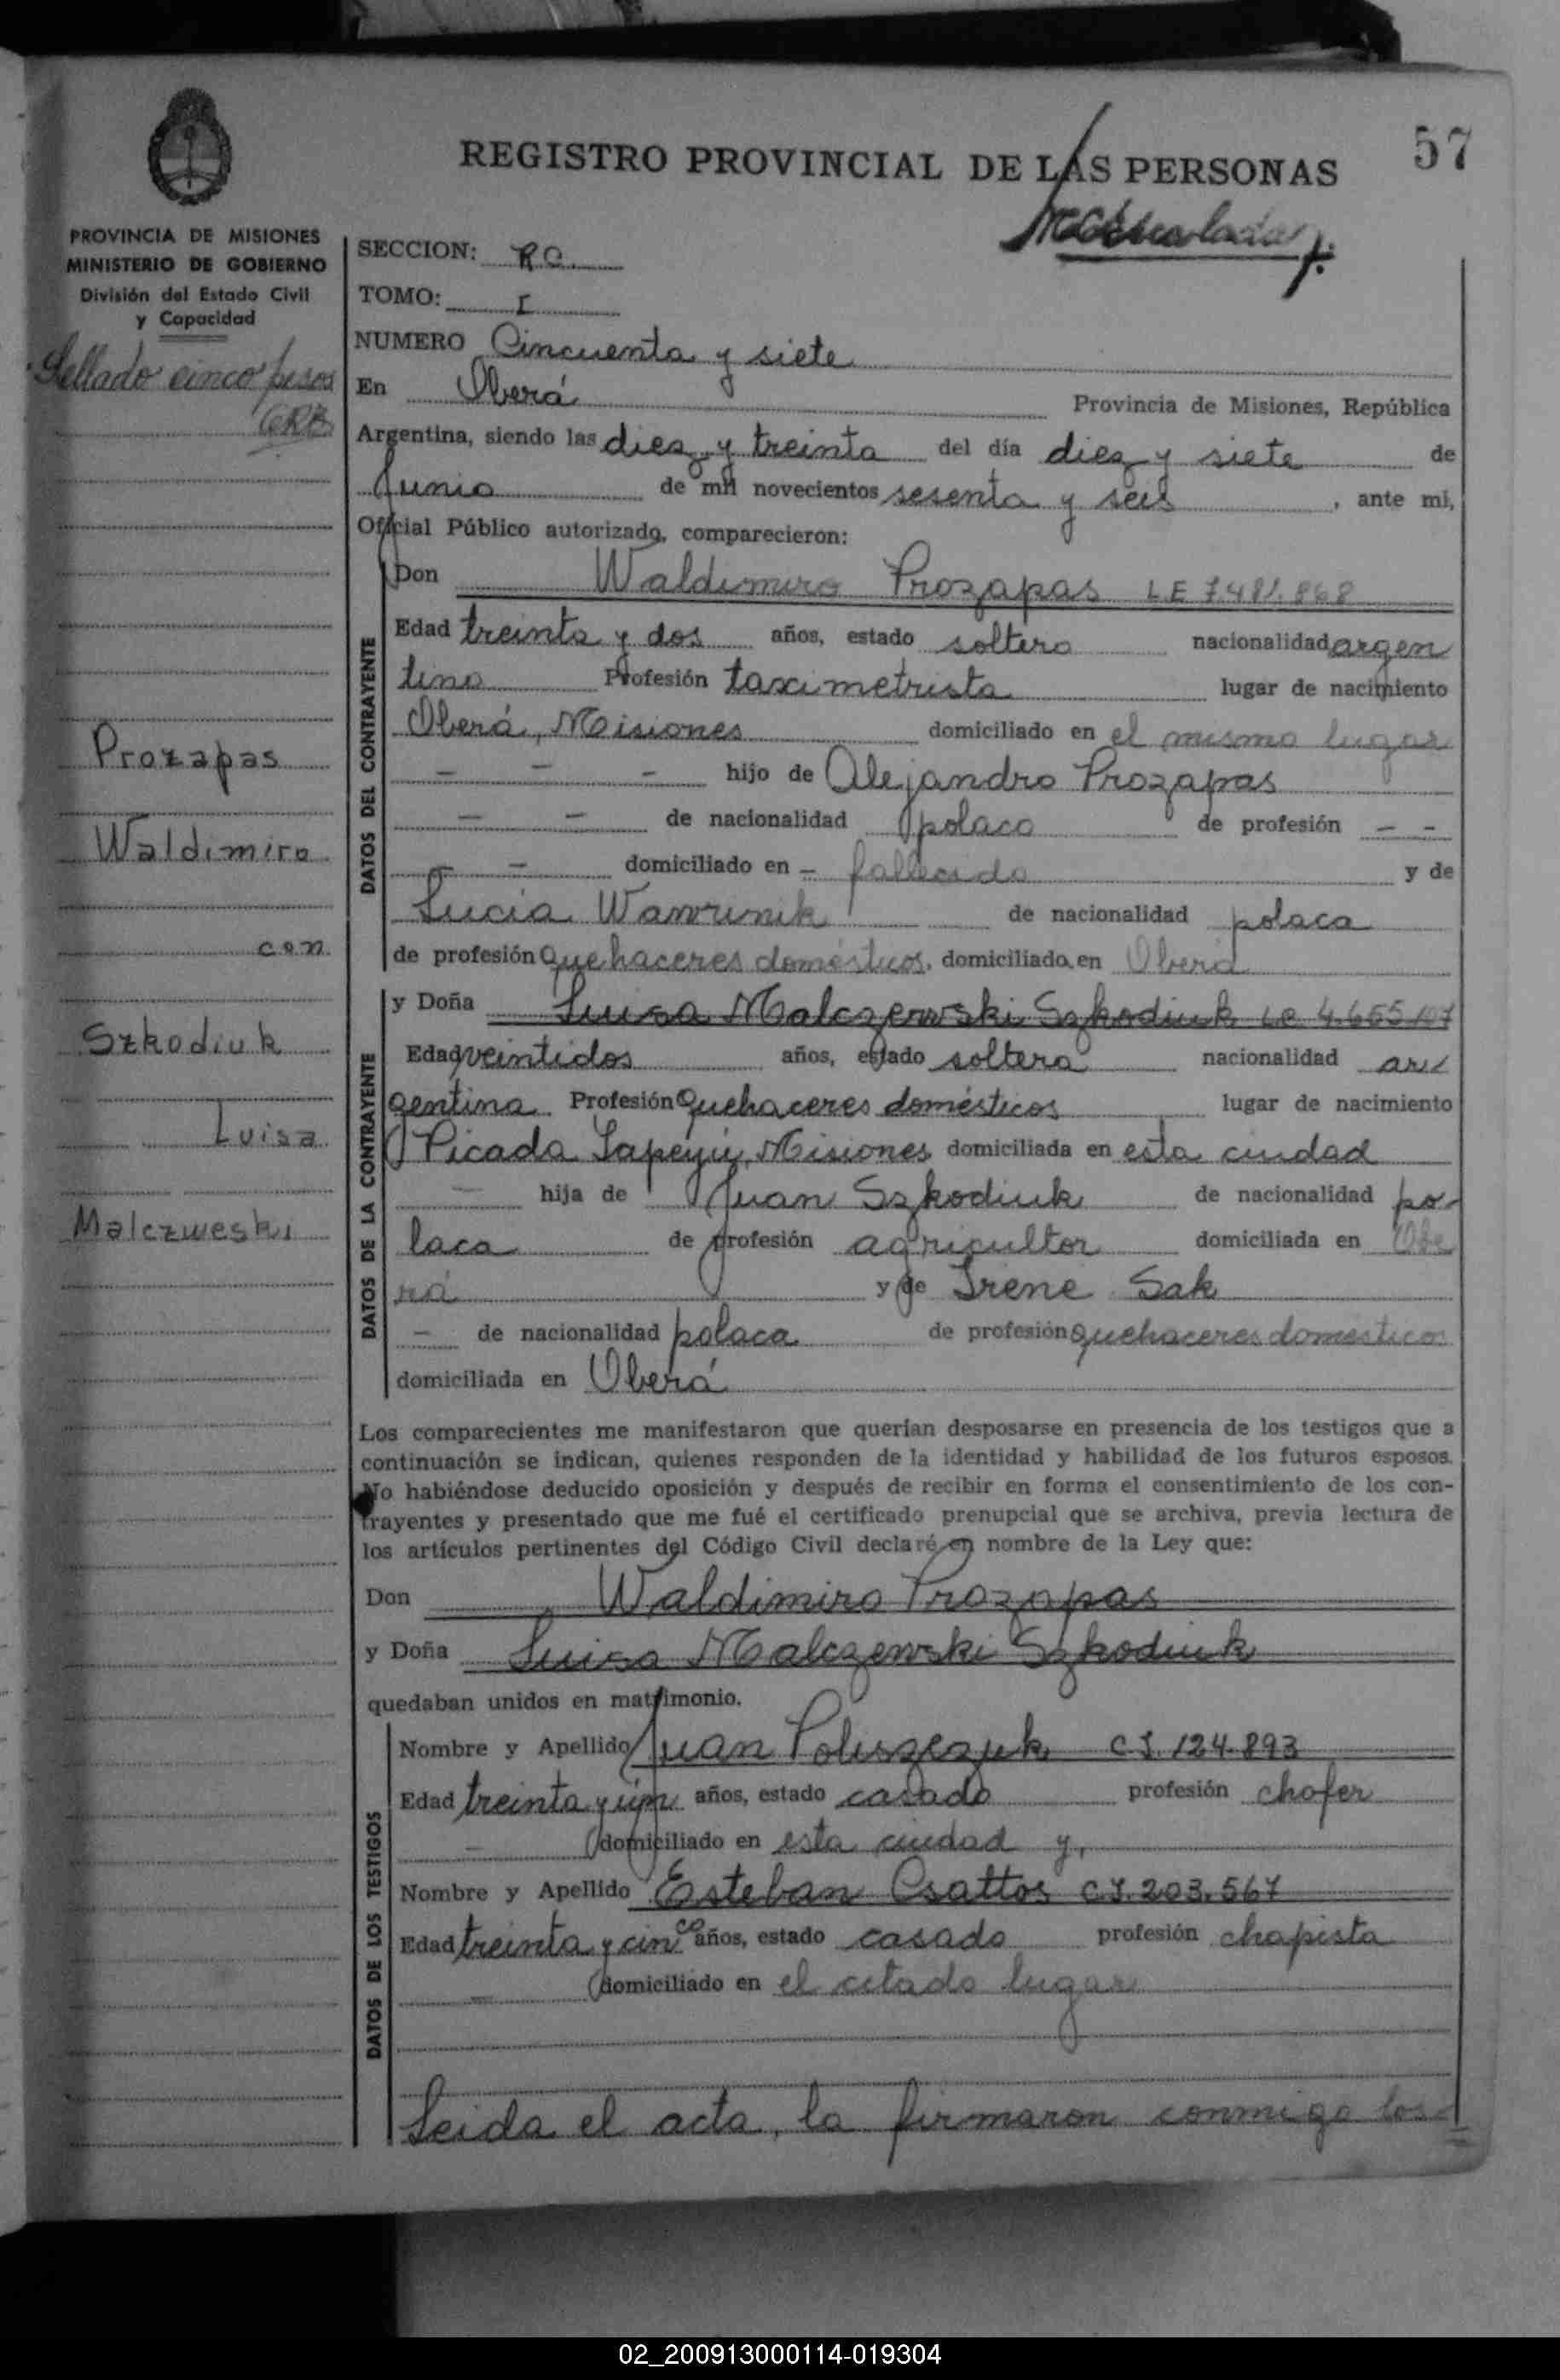 57
REGISTRO PROVINCIAL DE LAS PERSONAS
PROVINCIA DE MISIONES
MINISTERIO DE GOBIERNO
División del Estado Civil
y Capacidad
Sellado cinco pesos
Prozapas
Waldimiro
con
Szkodiuk
Luisa
Malczweski
SECCION: RC.
TOMO: I
NUMERO Cincuenta y siete
En Oberá Provincia de Misiones, República
Argentina, siendo las diez y treinta del día diez y siete de
Junio de mil novecientos sesenta y seis, ante mi,
Oficial Público autorizado, comparecieron:
DATOS DEL CONTRAYENTE
Don Waldimiro Prozapas LE 7.481.868
Edad treinta y dos años, estado soltero nacionalidad argen
tino Profesión taximetrista lugar de nacimiento
Oberá, Misiones domiciliado en el mismo lugar
- - - hijo de Alejandro Prozapas
- - de nacionalidad polaco de profesión - -
- - domiciliado en - fallecido y de
Lucía Wawrunik de nacionalidad polaca
de profesión Quehaceres domésticos, domiciliado en Oberá
DATOS DE LA CONTRAYENTE
y Doña Luisa Malczewski Szkodiuk LC 4.655.107
Edad veintidos años, estado soltera nacionalidad ar
gentina Profesión Quehaceres domésticos lugar de nacimiento
Picada Yapeyú, Misiones domiciliada en esta ciudad
- hija de Juan Szkodiuk de nacionalidad po-
laca de profesión agricultor domiciliada en Obe
rá y de Irene Sak
- de nacionalidad polaca de profesión quehaceres domesticos
domiciliada en Oberá
Los comparecientes me manifestaron que querían desposarse en presencia de los testigos que a
continuación se indican, quienes responden de la identidad y habilidad de los futuros esposos.
No habiéndose deducido oposición y después de recibir en forma el consentimiento de los con-
trayentes y presentado que me fué el certificado prenupcial que se archiva, previa lectura de
los artículos pertinentes del Código Civil declaré en nombre de la Ley que:
Don Waldimiro Prozapas
y Doña Luisa Malczewski Szkodiuk
quedaban unidos en matrimonio.
DATOS DE LOS TESTIGOS
Nombre y Apellido Juan Poliszczuk C.I. 124.893
Edad treinta y un años, estado casado profesión chofer
- domiciliado en esta ciudad y,
Nombre y Apellido Esteban Csattos C.I. 203.567
Edad treinta y cinco años, estado casado profesión chapista
- domiciliado en el citado lugar
Leida el acta, la firmaron conmigo los
02_200913000114-019304